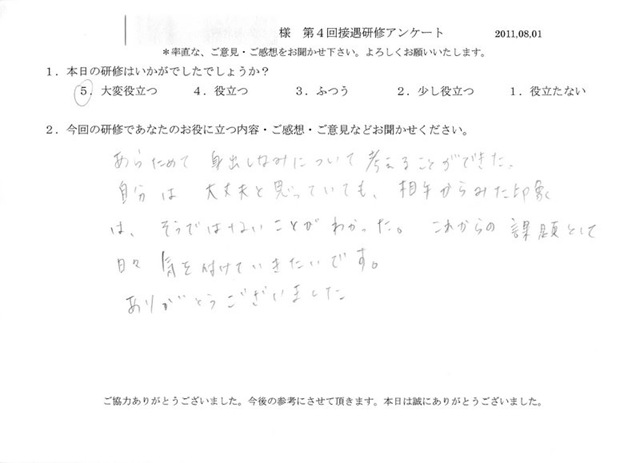 様 第４回接遇研修アンケート 2011.08.01
＊率直な、ご意見・ご感想をお聞かせ下さい。よろしくお願いいたします。
１．本日の研修はいかがでしたでしょうか？
５．大変役立つ ４．役立つ ３．ふつう ２．少し役立つ １．役立たない
２．今回の研修であなたのお役に立つ内容・ご感想・ご意見などお聞かせください。
あらためて 身出しなみについて 考えることができた。
自分は 大丈夫と思っていても、相手からみた印象
は、そうではないことがわかった。これからの課題として
日々 気を付けていきたいです。
ありがとうございました
ご協力ありがとうございました。今後の参考にさせて頂きます。本日は誠にありがとうございました。